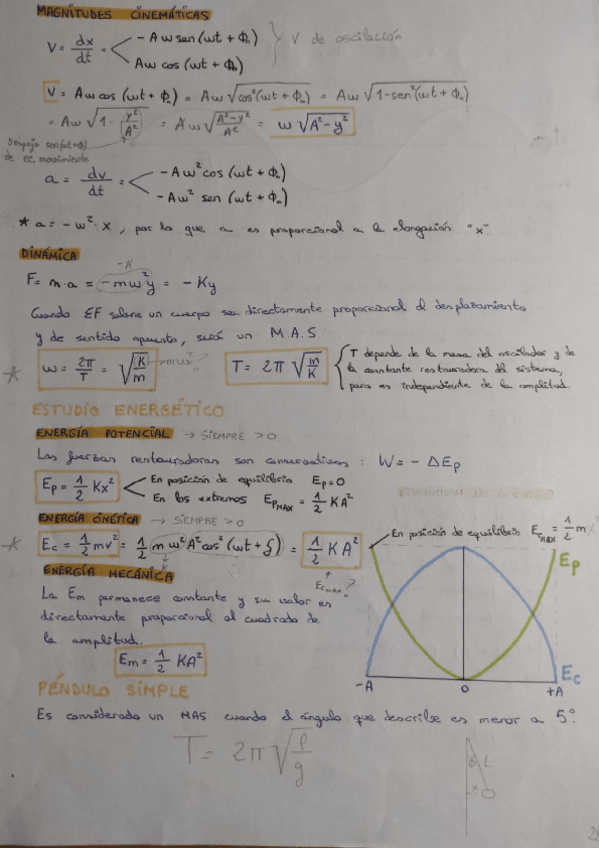 MAGNITUDES CINEMÁTICAS
V = dx/dt = < - Aω sen (ωt + Φ₀)
Aω cos (ωt + Φ₀) } V de oscilación
V = Aω cos (ωt + Φ₀) = Aω √cos²(ωt + Φ₀) = Aω √1-sen²(ωt + Φ₀)
= Aω √1 - y²/A² = Aω √A²-y²/A² = ω √A²-y²
Despejo sen(ωt+Φ₀)
de ec. movimiento
a = dv/dt = < -Aω² cos (ωt + Φ₀)
-Aω² sen (ωt + Φ₀)
* a = -ω² · x , por lo que a es proporcional a la elongación "x".
DINÁMICA
-K
F = m·a = -mω²y = -Ky
Cuando ΣF sobre un cuerpo sea directamente proporcional al desplazamiento
y de sentido opuesto, será un M.A.S
ω = 2π/T = √K/m
T = 2π √m/K { T depende de la masa del oscilador y de
la constante restauradora del sistema,
pero es independiente de la amplitud.
ESTUDIO ENERGÉTICO
ENERGÍA POTENCIAL → SIEMPRE > 0.
Las fuerzas restauradoras son conservativas : W = - ΔEp
Ep = 1/2 Kx² < En posición de equilibrio Ep = 0
En los extremos Ep MAX = 1/2 KA²
ENERGÍA CINÉTICA → SIEMPRE > 0
En posición de equilibrio Ec MAX = 1/2 m
Ec = 1/2 mv² = 1/2 m ω² A² cos² (ωt + ξ) = 1/2 KA²
K
Ec MAX?
ENERGÍA MECÁNICA
La Em permanece constante y su valor es
directamente proporcional al cuadrado de
la amplitud.
Em = 1/2 KA²
Ep
Ec
-A
0
+A
PÉNDULO SIMPLE
Es considerado un MAS cuando el ángulo que describe es menor a 5º.
T = 2π √l/g
L
x